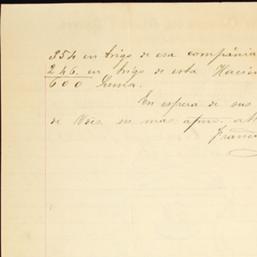 354 en trigo de esa compañia
246 en trigo de esta Hacien
600 Suma.
En espera de sus
de Vdes su mas afmo. atto
Franc